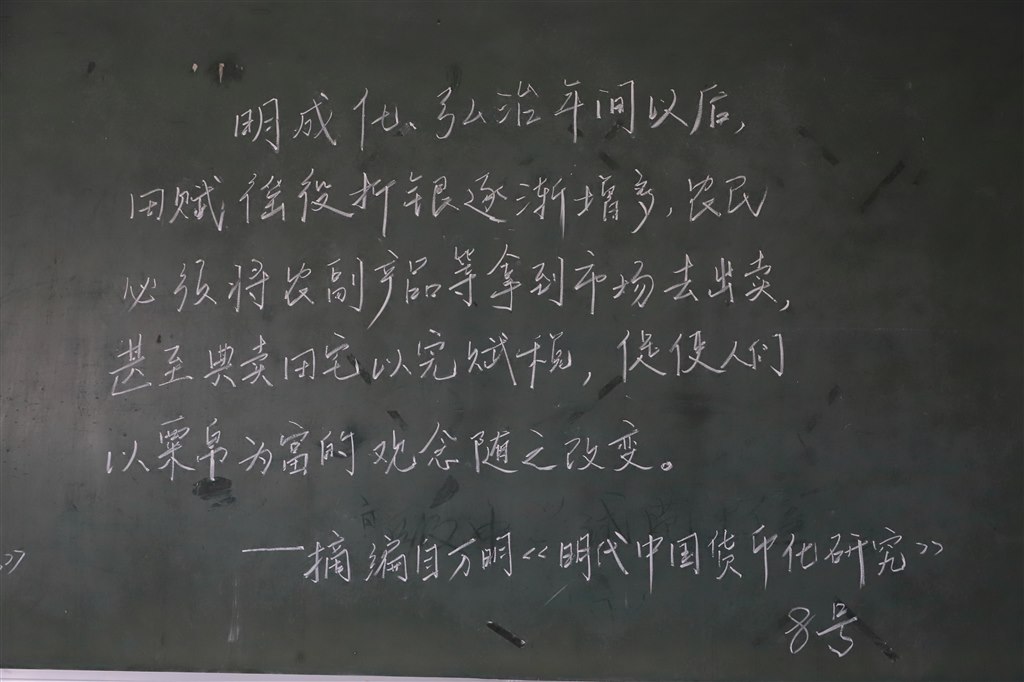 明成化、弘治年间以后,
田赋徭役折银逐渐增多,农民
必须将农副产品等拿到市场去出卖,
甚至典卖田宅以完赋税,促使人们
以粟帛为富的观念随之改变。
——摘编自万明《明代中国货币化研究》
》
8号